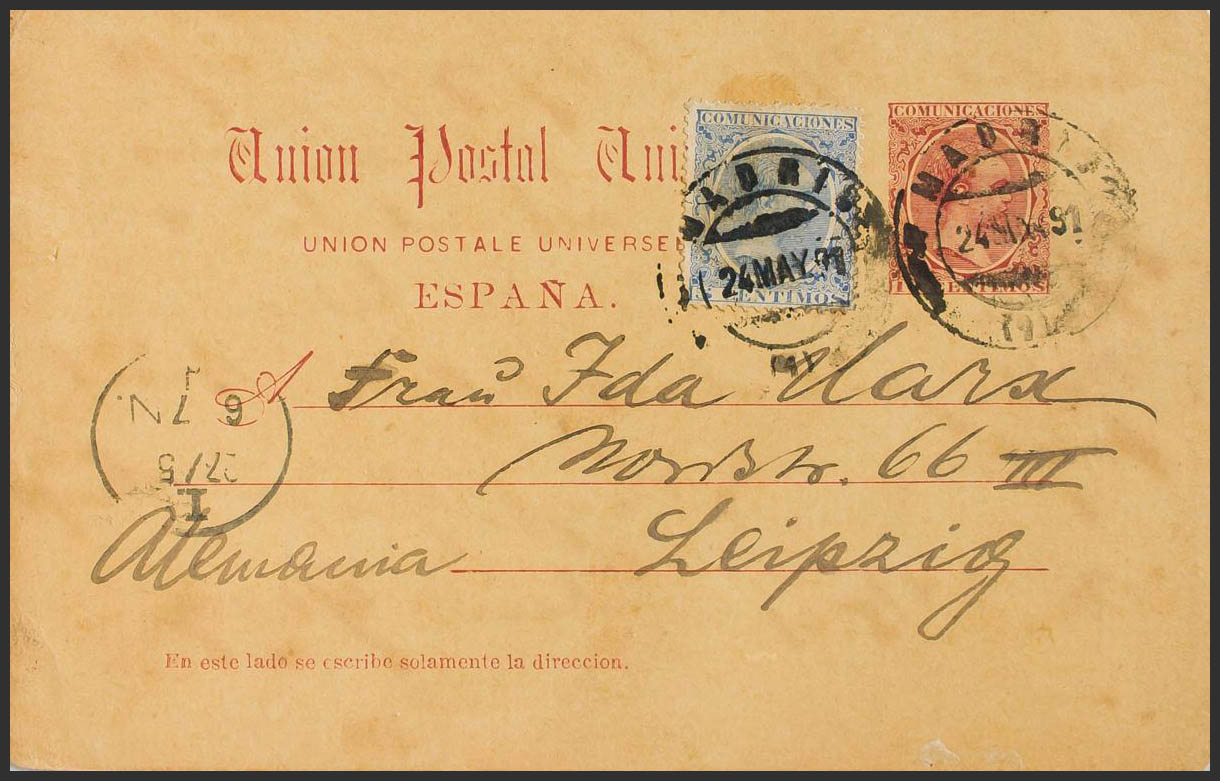 Union Postal
UNION POSTALE
ESPAÑA.
COMUNICACIONES
MADRID
24 MAY 91
CENTIMOS
COMUNICACIONES
MADRID
24 MAY 91
(9)
A Frau Ida Marx
Nordstr. 66 III
Leipzig
Alemania
6 7 N.
27/5
I
En este lado se escribe solamente la direccion.